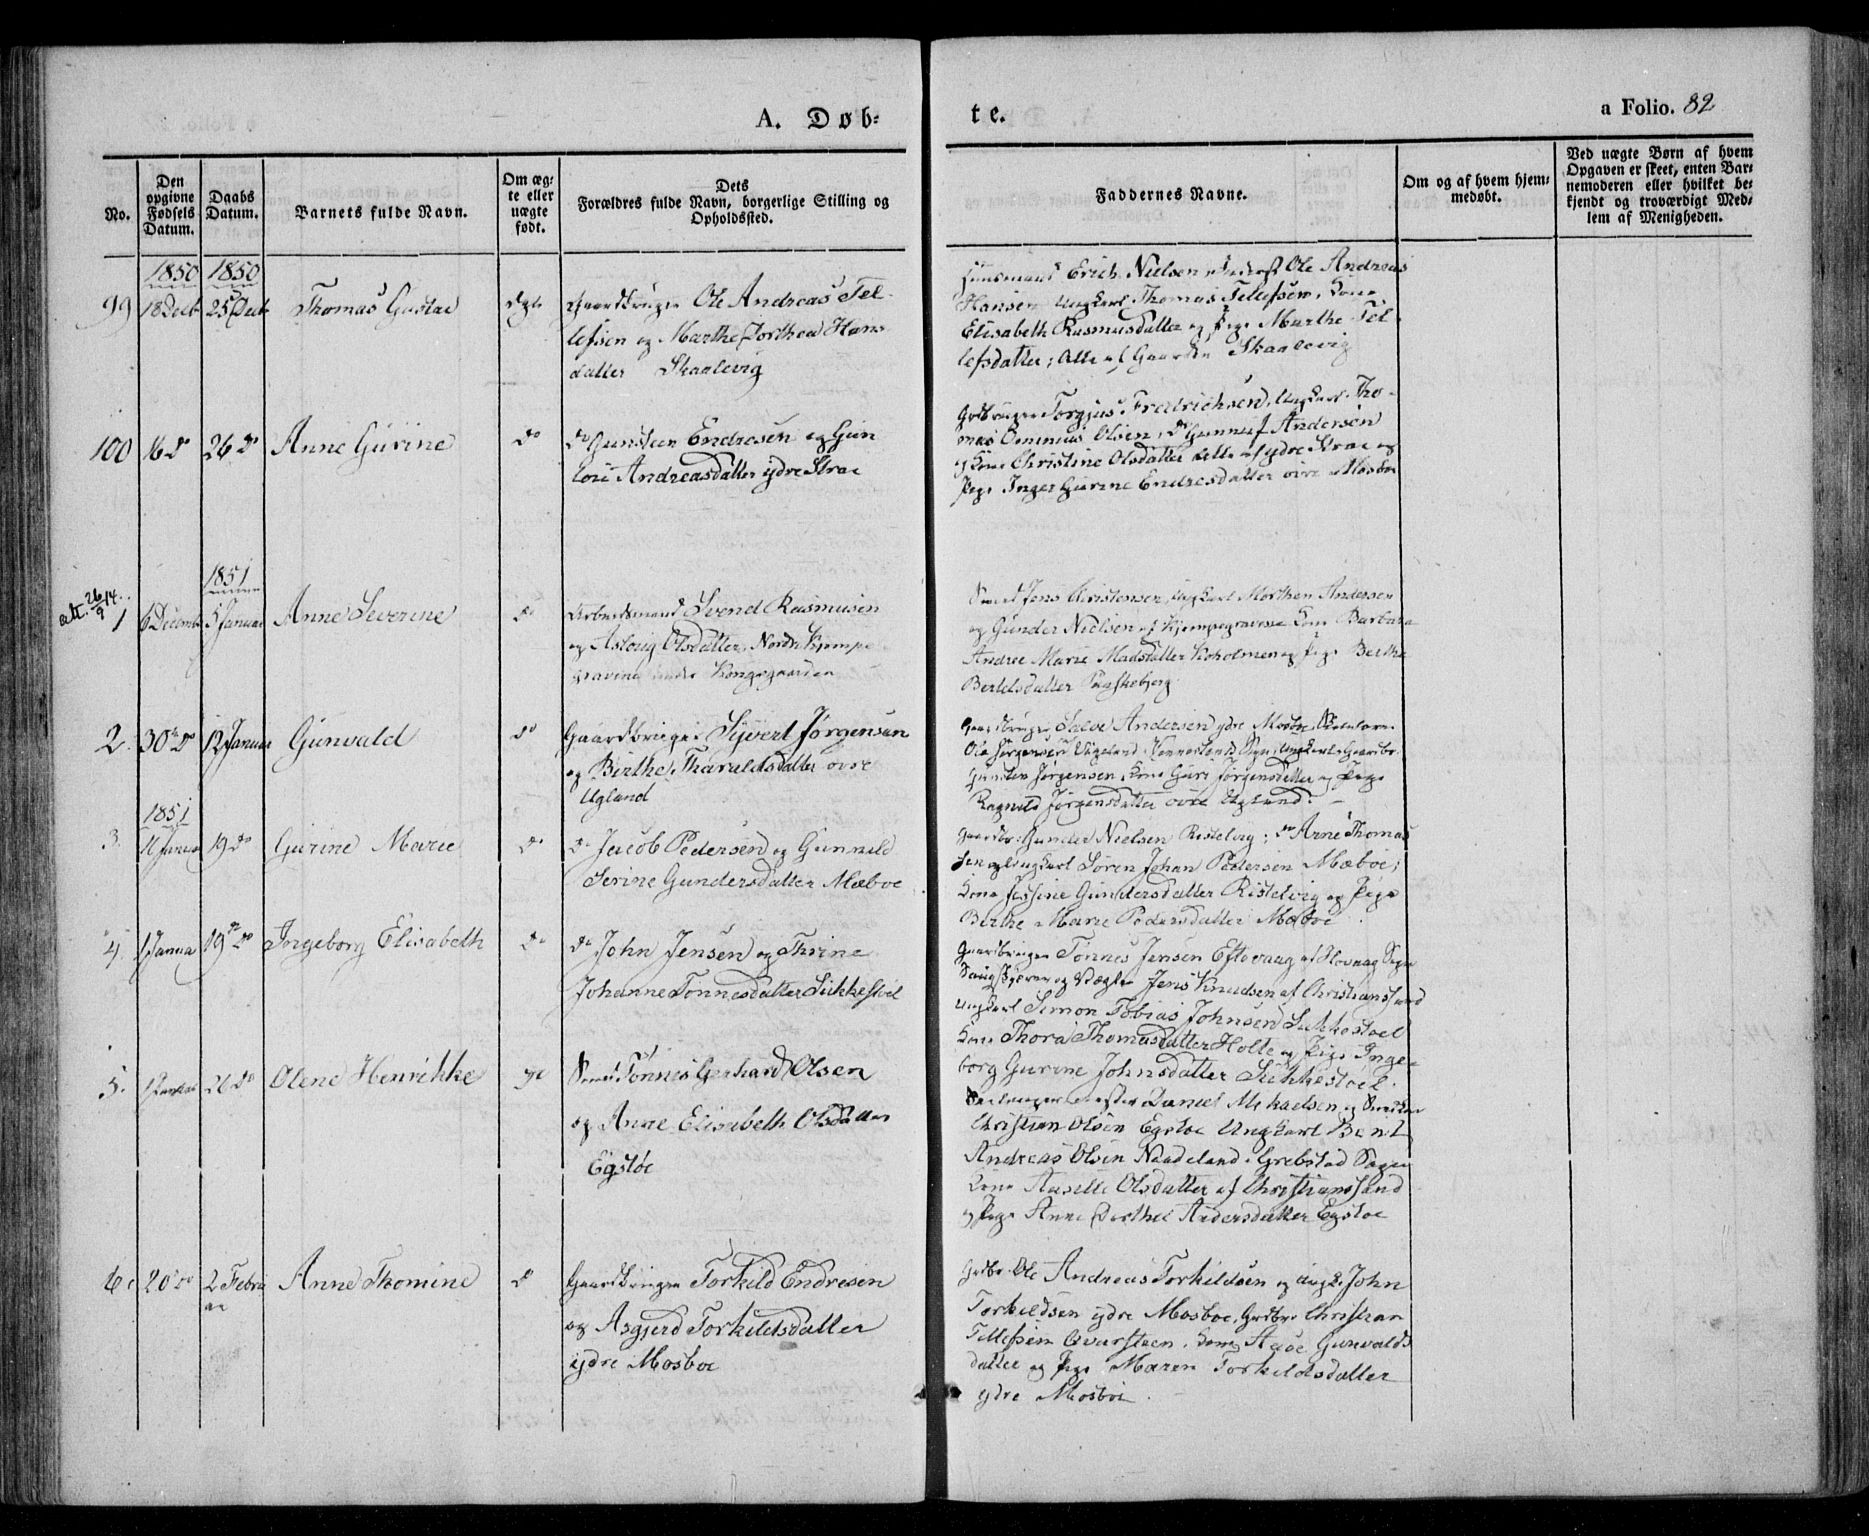 A. Døb-
te.
a Folio. 82
No.
Den
opgivne
Fødsels
Datum.
Daabs
Datum.
Barnets fulde Navn.
Om æg-
te eller
uægte
født.
Dets
Forældres fulde Navn, borgerlige Stilling og
Opholdssted.
Faddernes Navne.
Om og af hvem hjem-
medøbt.
Ved uægte Børn af hvem
Opgaven er skeet, enten Bar-
nemoderen eller hvilket be-
kjendt og troværdigt Med-
lem af Menigheden.
1850 1850
99 18 Decb 25 Decb Thomas Gustav
Gaardbruger Ole Andreas Tel-
lefsen og Marthe Dorthea Hans
datter Skaalevig
Erich Nielsen Ole Andreas
Hansen Ungkarl Thomas Tellefsen, Kone
Elisabeth Rasmusdatter og Pige Marthe Tel
lefsdatter; Alle af Gaarden Skaalevig
100 16 do 26 do Anne Gurine do
do Gunsteen Endresen og Gun
lou Andreasdatter ydre Strae
Gdbruger Torgius Fredrichsen, Ungkarl Tho-
mas Omnius Olsen, do Gunnuf Andersen
og Kone Christine Olsdatter alle af ydre Strae og
Pige Inger Gurine Endresdatter øvre Mosboe
1851
att. 26/9 14.
1 6 Decemb 5 Januar Anne Severine do
Arbeidsmand Svend Rasmusen
og Aslaug Olsdatter, Nordre Kjempe
gravene under Kongsgaarden
Smed Jens Christensen, Ungkarl Morthen Andersen
og Gunder Nielsen af Kjempegravene Kone Barbara
Andree Marie Madsdatter Koholmen og Pige Berthe
Bertelsdatter
2. 30te do 12 Januar Gunvald do
Gaardbruger Syvert Jørgensen
og Birthe Tharaldsdatter øvre
Ugland
Gaardbruger Salve Andersen ydre Mosbø,
Ole Jørgensen Vigeland, Vennesland Sogn; Ungkarl Gaardbr.
Gunsten Jørgensen, Kone Guri Jørgensdatter og Pige
Ragnild Jørgensdatter øvre Ugland.
1851
3. 11 Januar 19 do Gurine Marie do
do Jacob Pedersen og Gunnild
Serine Gundersdatter Mæboe
Gaardbr: Gunder Nielsen Ristelvig; do Arne Thomas
sen og Ungkarl Søren Johan Pedersen Mæboe;
Kone Jessine Gundersdatter Ristelvig og Pige
Birthe Marie Pedersdatter Mæboe
4. 1 Janua 19de do Ingeborg Elisabeth do
do John Jensen og Thrine
Johanne Tønnesdatter Sukkestøel
Gaardbruger Tønnes Jensen Eftevaag af Høvaag Sogn
og Vægter Jens Knudsen af Christianssand
Ungkarl Simon Tobias Johnsen Sukkestoel
Kone Thora Thomasdatter Holte og Pige Inge-
borg Gurine Johnsdatter Sukkestøel.
5. 1 Januar 26 do Olene Henrikke
Smed Tønnes Gerhard Olsen
og Anne Elisabeth Olsdatter
Egstøe
Daniel Mikaelsen og Snedker
Christian Olsen Egstøe Ungkarl Bent
Andreas Olsen Naadeland, Grebstad Sogn
Kone Aaselle Olsdatter af Christianssand
og Pige Anne Dorthe Andersdatter Egstoe
6. 20 do 2 Febru
ar
Anne Thomine do
Gaardbruger Torkild Endresen
og Asgjerd Torkildsdatter
ydre Mosboe
Gdbr. Ole Andreas Torkildsen og Ungk. John
Torkildsen ydre Mosboe, Gdbr. Christian
Tellefsen Qvarsteen, Kone Aase Gunvalds
datter og Pige Maren Torkildsdatter
ydre Mosboe.